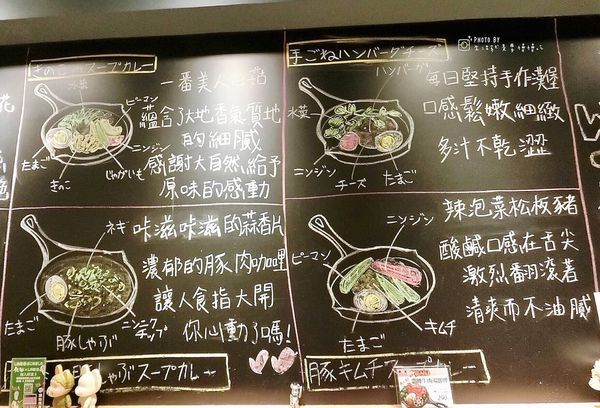 きのこ スープカレー
一番美人
水菜
ピーマン
ニンジン
じゃがいも
たまご
きのこ
大地香氣質地
的細膩
感謝大自然給予
原味的感動
手ごねハンバーグチーズ
PHOTO BY
ハンバーグ
水菜
ニンジン
チーズ
たまご
每日堅持手作漢堡
口感鬆嫩細緻
多汁不乾澀
ネギ
たまご
豚しゃぶ
ニンニク
チップ
咔滋咔滋的蒜香片
濃郁的豚肉咖哩
讓人食指大開
你心動了嗎!
しゃぶスープカレー
ニンジン
ピーマン
たまご
キムチ
辣泡菜松板豬
酸鹹口感在舌尖
激烈翻滾著
清爽而不油膩
豚キムチスープカレー
290